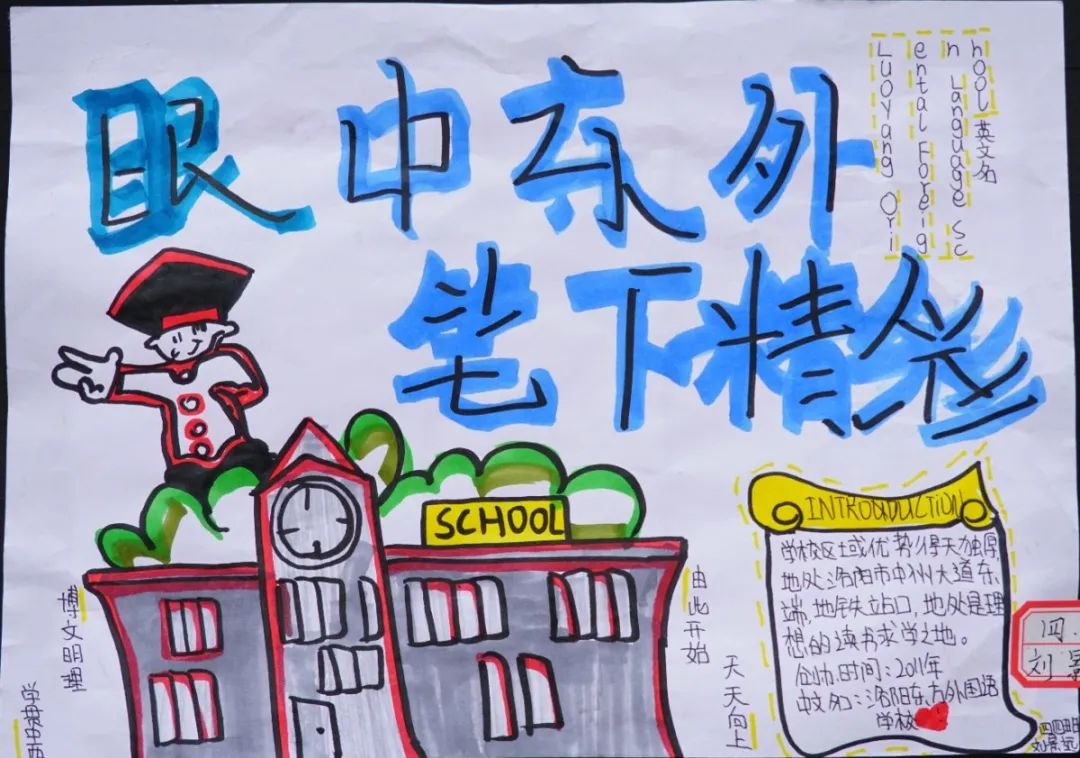 眼中东外
笔下精彩
Luoyang Ori
ental Foreig
n Language Sc
hool英文名
SCHOOL
INTRODUCTION
学校区域优势得天独厚,
地处洛阳市中州大道东
端,地铁站口,地处是理
想的读书求学之地。
创办时间:2011年
中文名:洛阳东方外国语
学校
博文明理
学贯中西
由此开始
天天向上
四.
刘景
刘景远